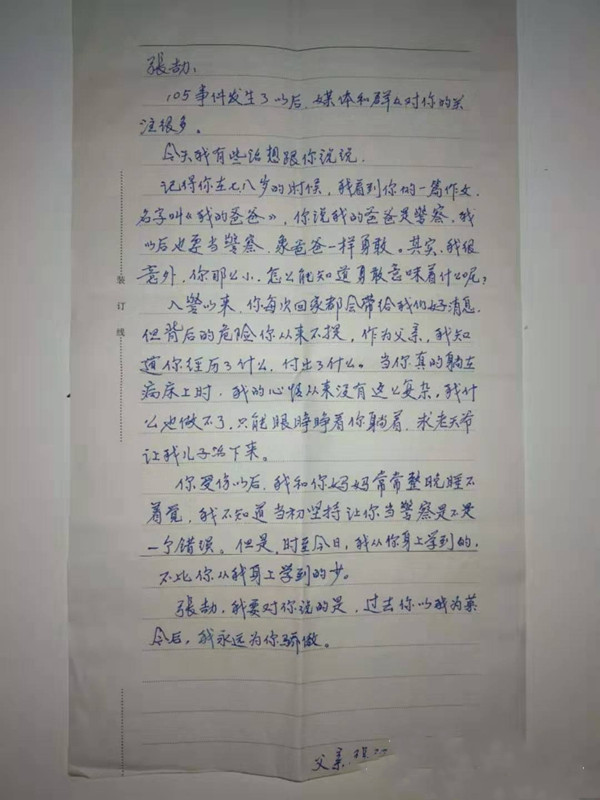 张劼、
105事件发生了以后、媒体和群众对你的关
注很多。
今天我有些话想跟你说说.
记得你在七八岁的时候，我看到你的一篇作文.
名字叫《我的爸爸》，你说我的爸爸是警察、我
以后也要当警察、象爸爸一样勇敢。其实、我很
意外、你那么小、怎么能知道勇敢意味着什么呢?
入警以来、你每次回家都会带给我们好消息.
但背后的危险你从来不提，作为父亲，我知
道你经历了什么、付出了什么。当你真的躺在
病床上时、我的心情从来没有这么复杂，我什
么也做不了、只能眼睁睁看你躺着、求老天爷
让我儿子活下来。
你受伤以后、我和你妈妈常常整晚睡不
着觉，我不知道当初坚持让你当警察是不是
一个错误。但是、时至今日，我从你身上学到的、
不比你从我身上学到的少。
张劼，我要对你说的是，过去你以我为荣
今后，我永远为你骄傲。
父亲
装
订
线